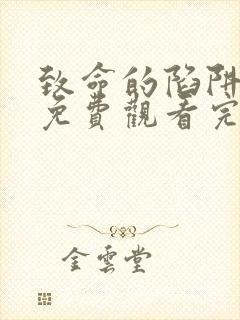 致命的陷阱
免費觀看完
金雲堂